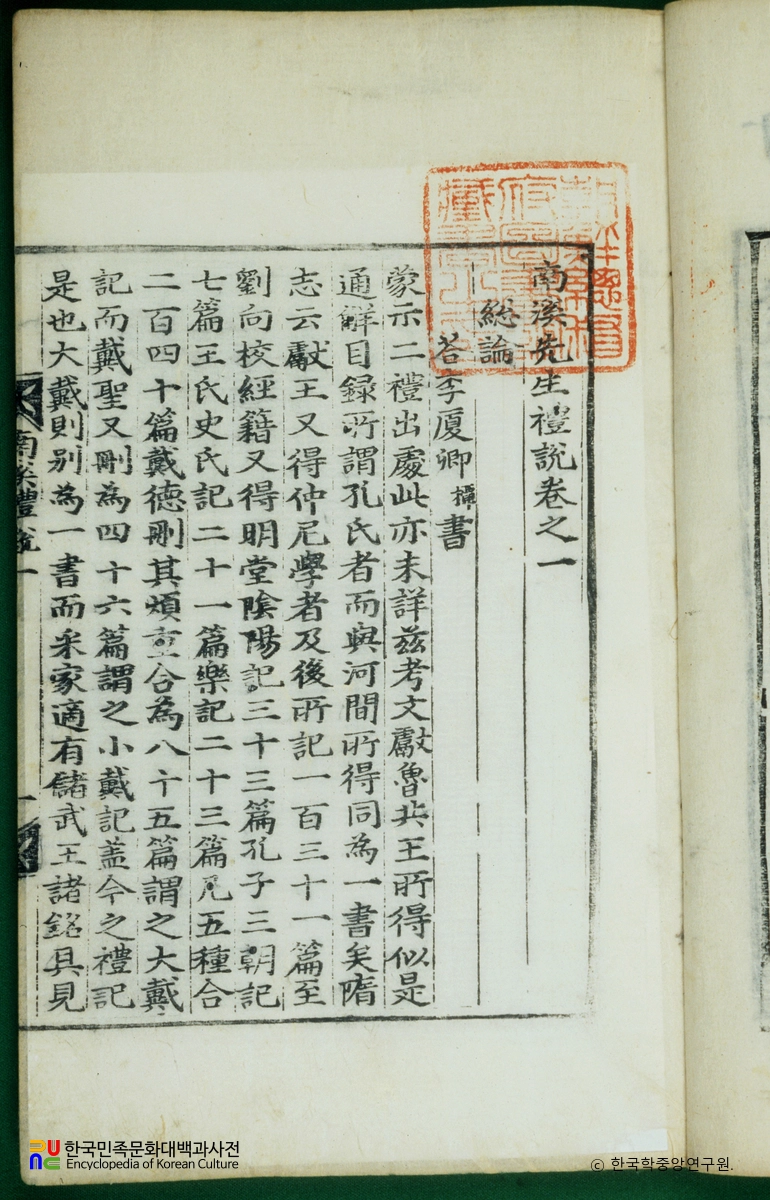 南溪先生禮說卷之一
総論
荅李厦卿橝書
蒙示二禮出處此亦未詳茲考文獻魯共王所得似是
通觧目録所謂孔氏者而與河間所得同為一書矣隋
志云獻王又得仲尼學者及後所記一百三十一篇至
劉向校經籍又得明堂陰陽記三十三篇孔子三朝記
七篇王氏史氏記二十一篇樂記二十三篇凢五種合
二百四十篇戴德刪其煩重合為八十五篇謂之大戴
記而戴聖又刪為四十六篇謂之小戴記盖今之禮記
是也大戴則别為一書而釆家適有儲武王諸銘具見
南溪禮說一
一
한국민족문화대백과사전
Encyclopedia of Korean Culture
© 한국학중앙연구원.